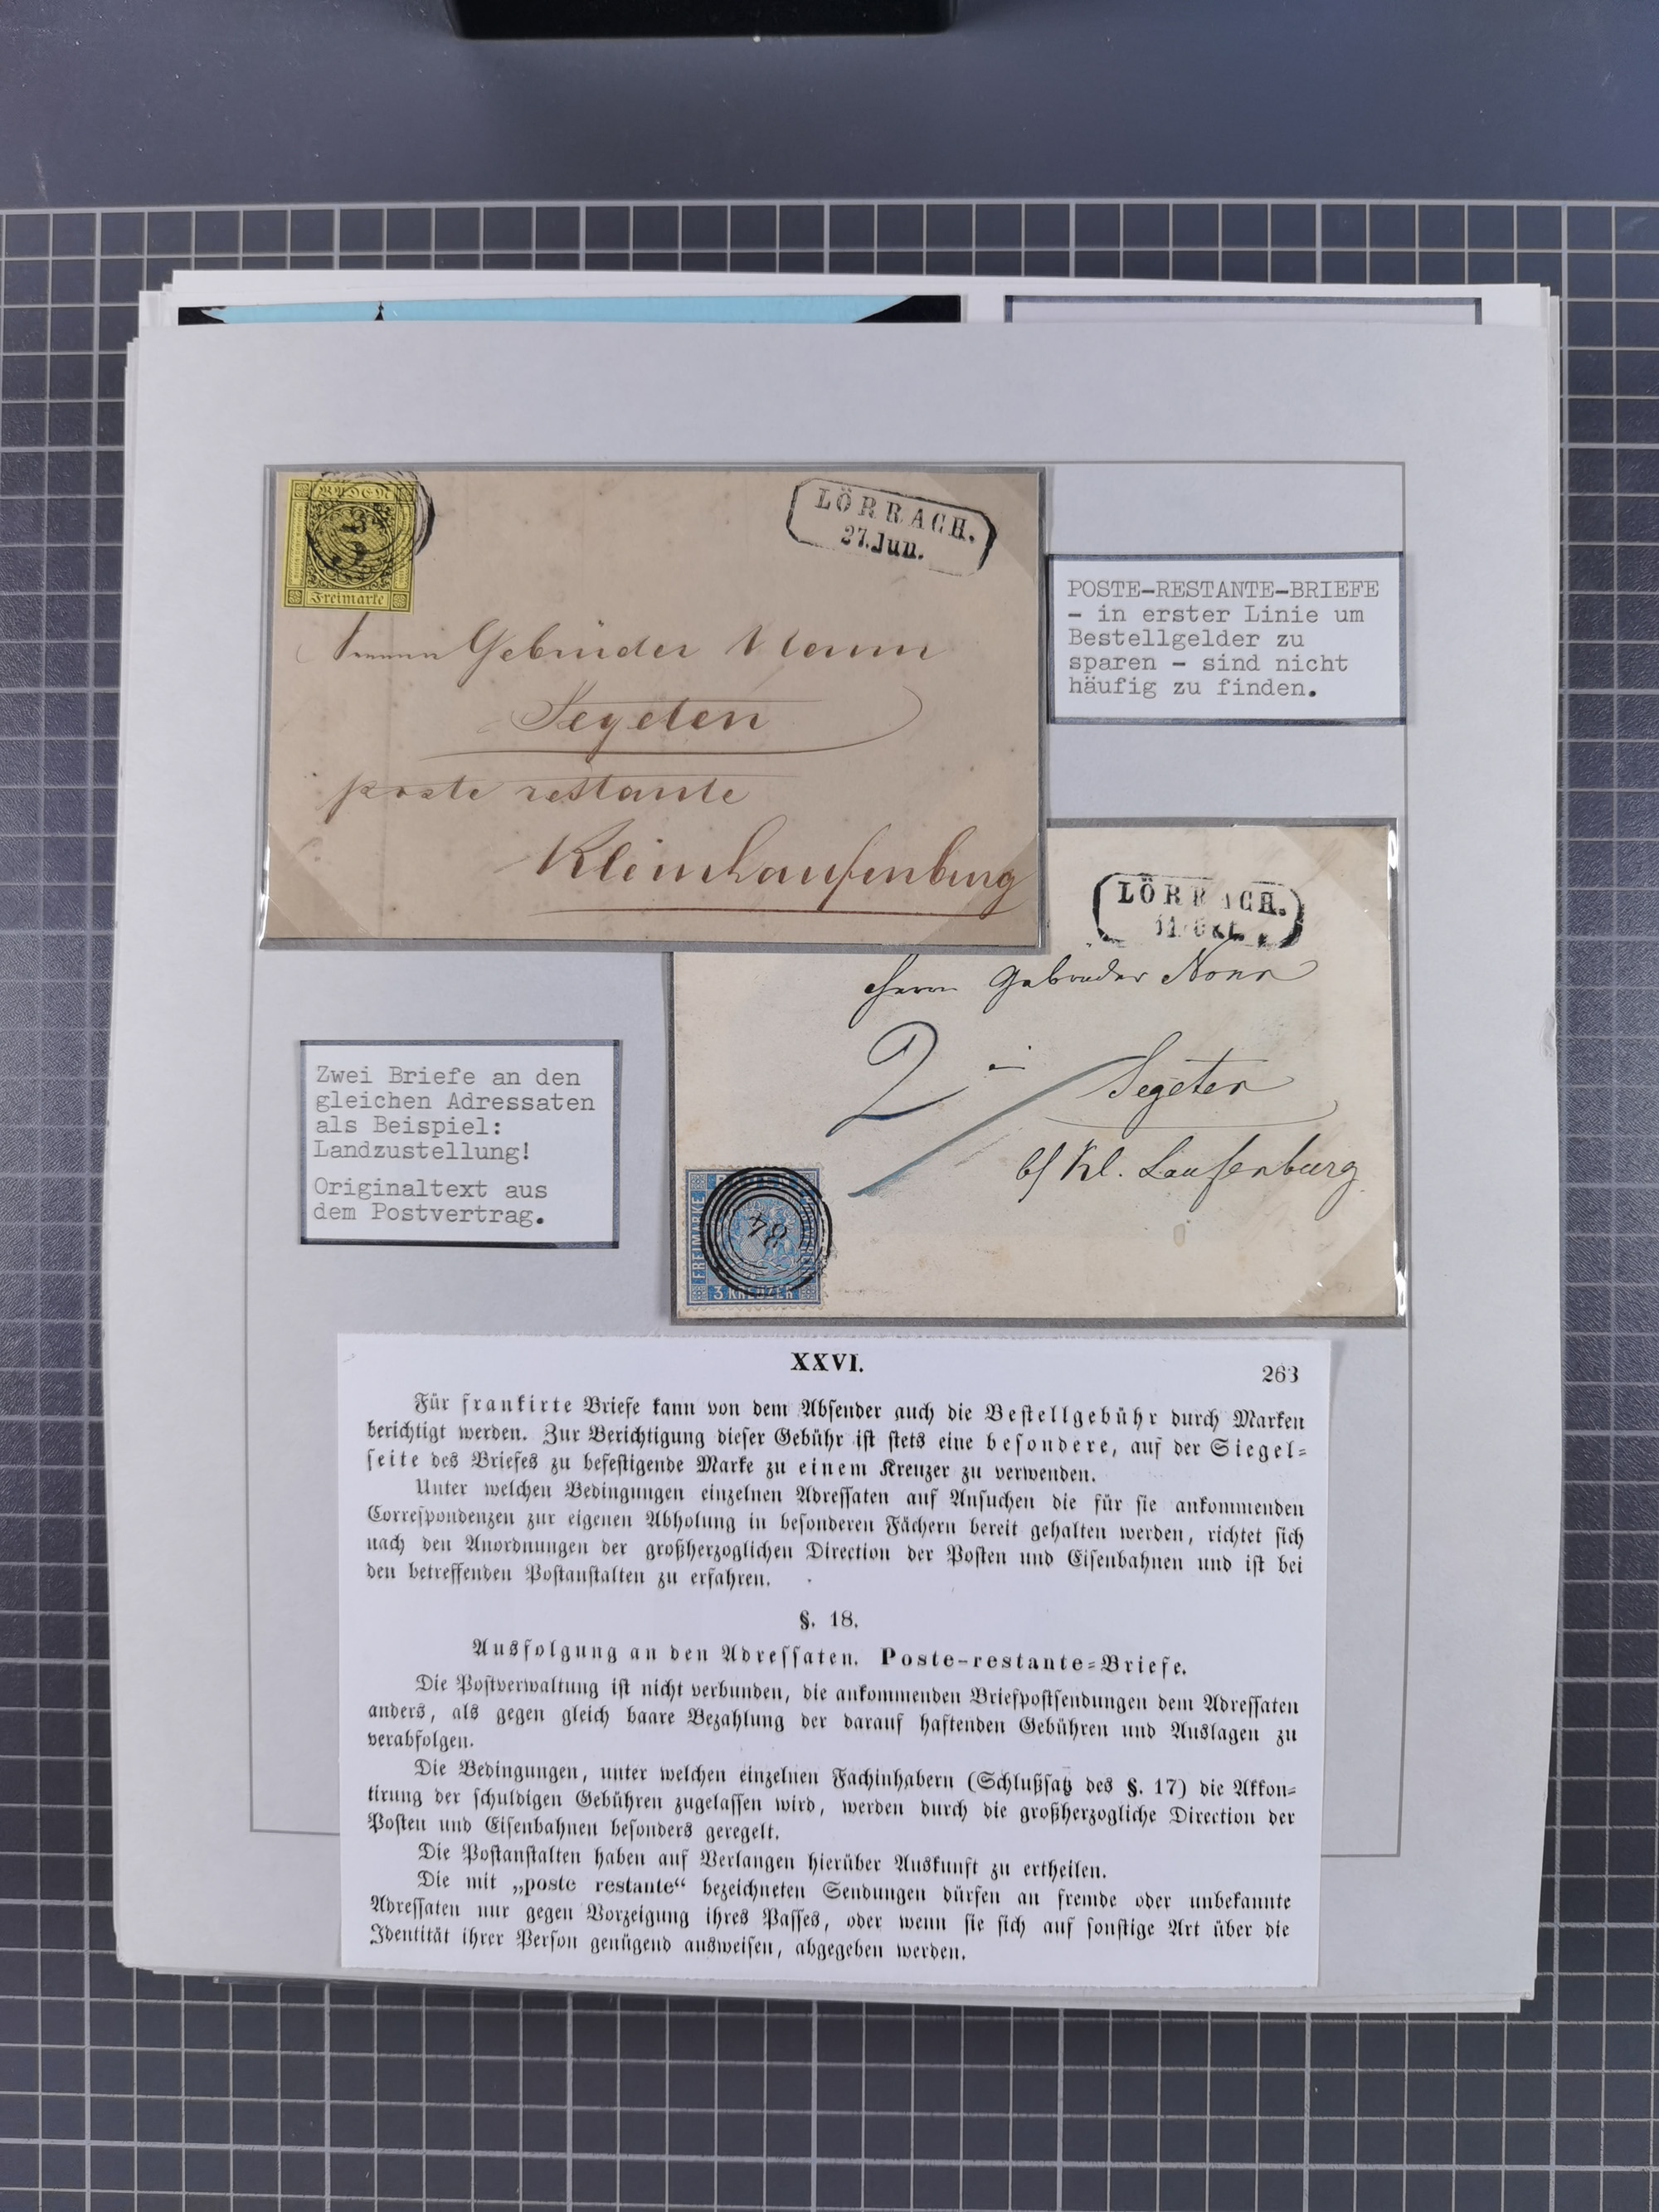 BADEN
3
Freimarke
LÖRRACH.
27.Jun.
Gebrüder Nann
Segeten
poste restante
Kleinlaufenburg
POSTE-RESTANTE-BRIEFE
- in erster Linie um
Bestellgelder zu
sparen - sind nicht
häufig zu finden.
LÖRRACH.
11.Okt.
Herrn Gebrüder Nann
2 in Segeten
b/ Kl. Laufenburg
FREIMARKE
84
3 KREUZER
Zwei Briefe an den
gleichen Adressaten
als Beispiel:
Landzustellung!
Originaltext aus
dem Postvertrag.
XXVI.
263
Für frankirte Briefe kann von dem Absender auch die Bestellgebühr durch Marken
berichtigt werden. Zur Berichtigung dieser Gebühr ist stets eine besondere, auf der Siegel=
seite des Briefes zu befestigende Marke zu einem Kreuzer zu verwenden.
Unter welchen Bedingungen einzelnen Adressaten auf Ansuchen die für sie ankommenden
Correspondenzen zur eigenen Abholung in besonderen Fächern bereit gehalten werden, richtet sich
nach den Anordnungen der großherzoglichen Direction der Posten und Eisenbahnen und ist bei
den betreffenden Postanstalten zu erfahren.
§. 18.
Ausfolgung an den Adressaten. Poste-restante=Briefe.
Die Postverwaltung ist nicht verbunden, die ankommenden Briefpostsendungen dem Adressaten
anders, als gegen gleich baare Bezahlung der darauf haftenden Gebühren und Auslagen zu
verabfolgen.
Die Bedingungen, unter welchen einzelnen Fachinhabern (Schlußsatz des §. 17) die Akkon=
tirung der schuldigen Gebühren zugelassen wird, werden durch die großherzogliche Direction der
Posten und Eisenbahnen besonders geregelt.
Die Postanstalten haben auf Verlangen hierüber Auskunft zu ertheilen.
Die mit „poste restante“ bezeichneten Sendungen dürfen an fremde oder unbekannte
Adressaten nur gegen Vorzeigung ihres Passes, oder wenn sie sich auf sonstige Art über die
Identität ihrer Person genügend ausweisen, abgegeben werden.